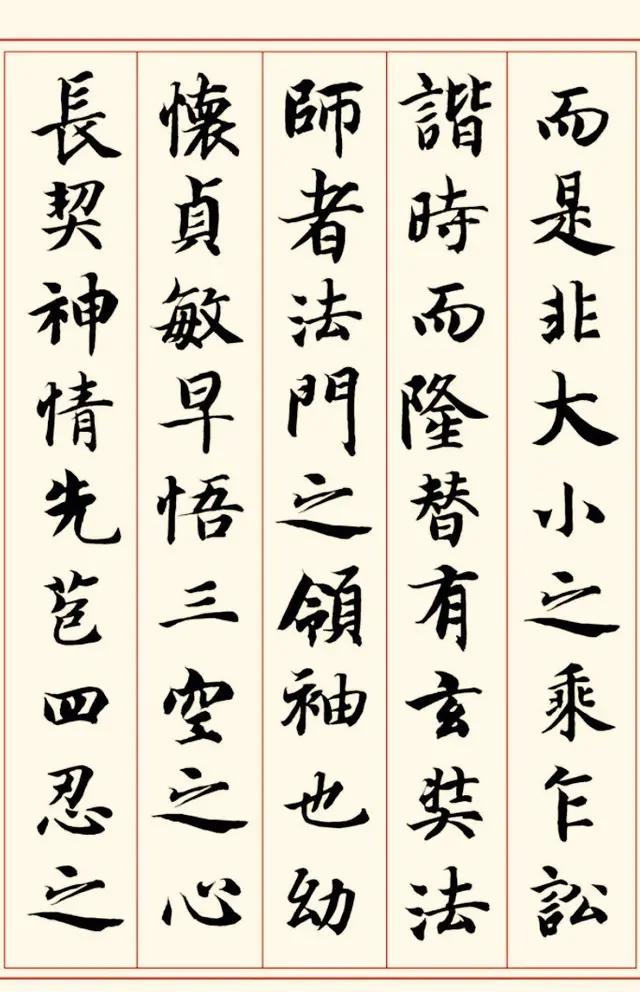 而是非大小之乘乍訟
諧時而隆替有玄奘法
師者法門之領袖也幼
懷貞敏早悟三空之心
長契神情先苞四忍之